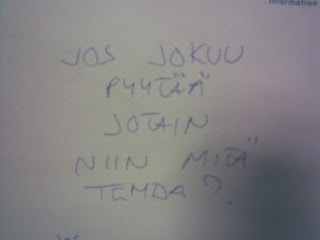 information
JOS JOKUU
PYYTÄÄ
JOTAIN
NIIN MITÄ
TEMDA?